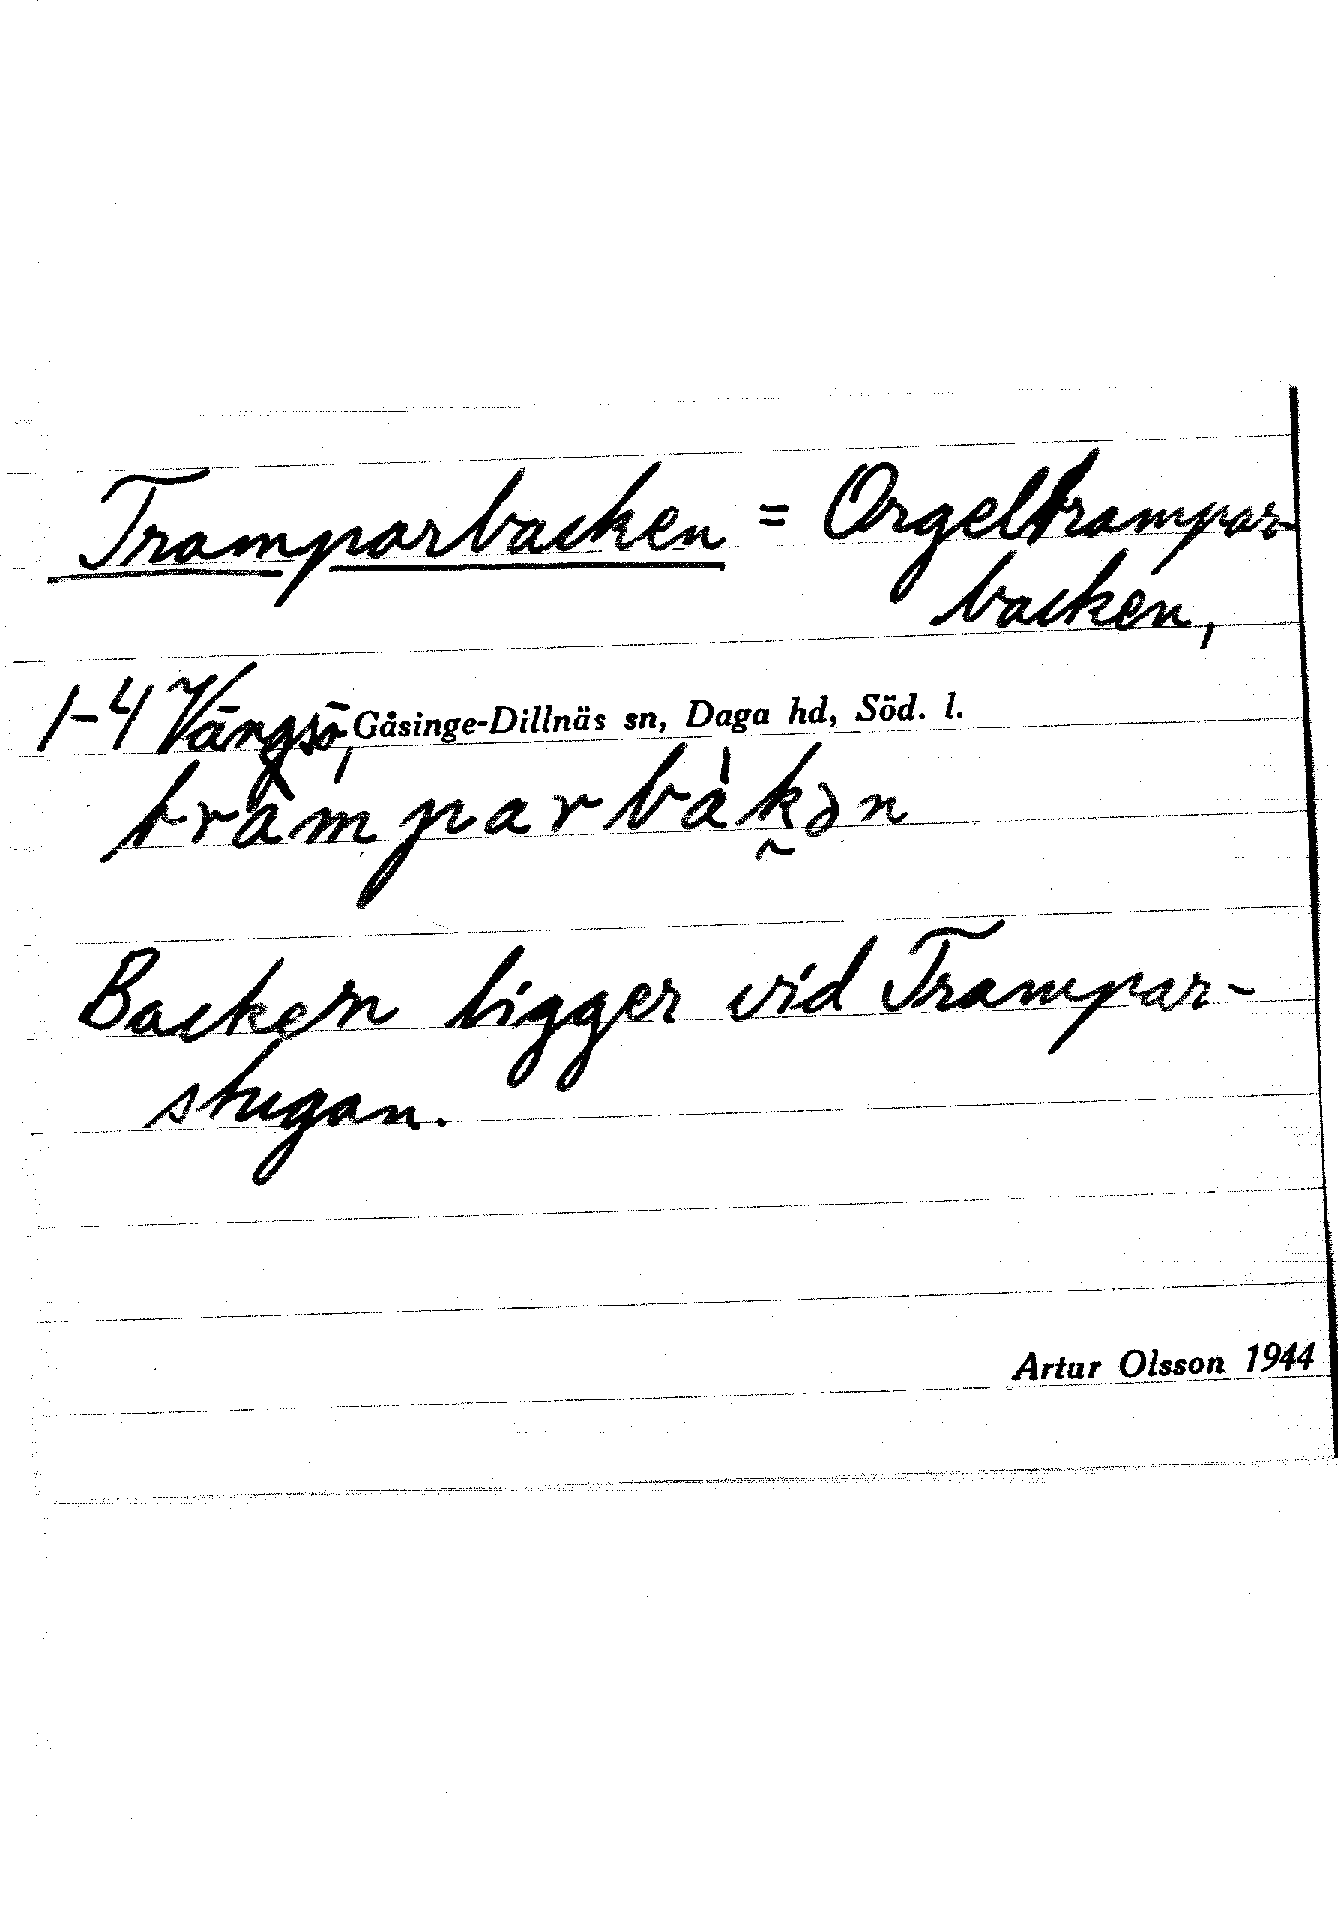 Tramparbacken = Orgeltrampar-
backen,
1-4 Vängsö, Gåsinge-Dillnäs sn, Daga hd, Söd. l.
tràmparbàk̰ən
Backen ligger vid Trampar-
stugan.
Artur Olsson 1944